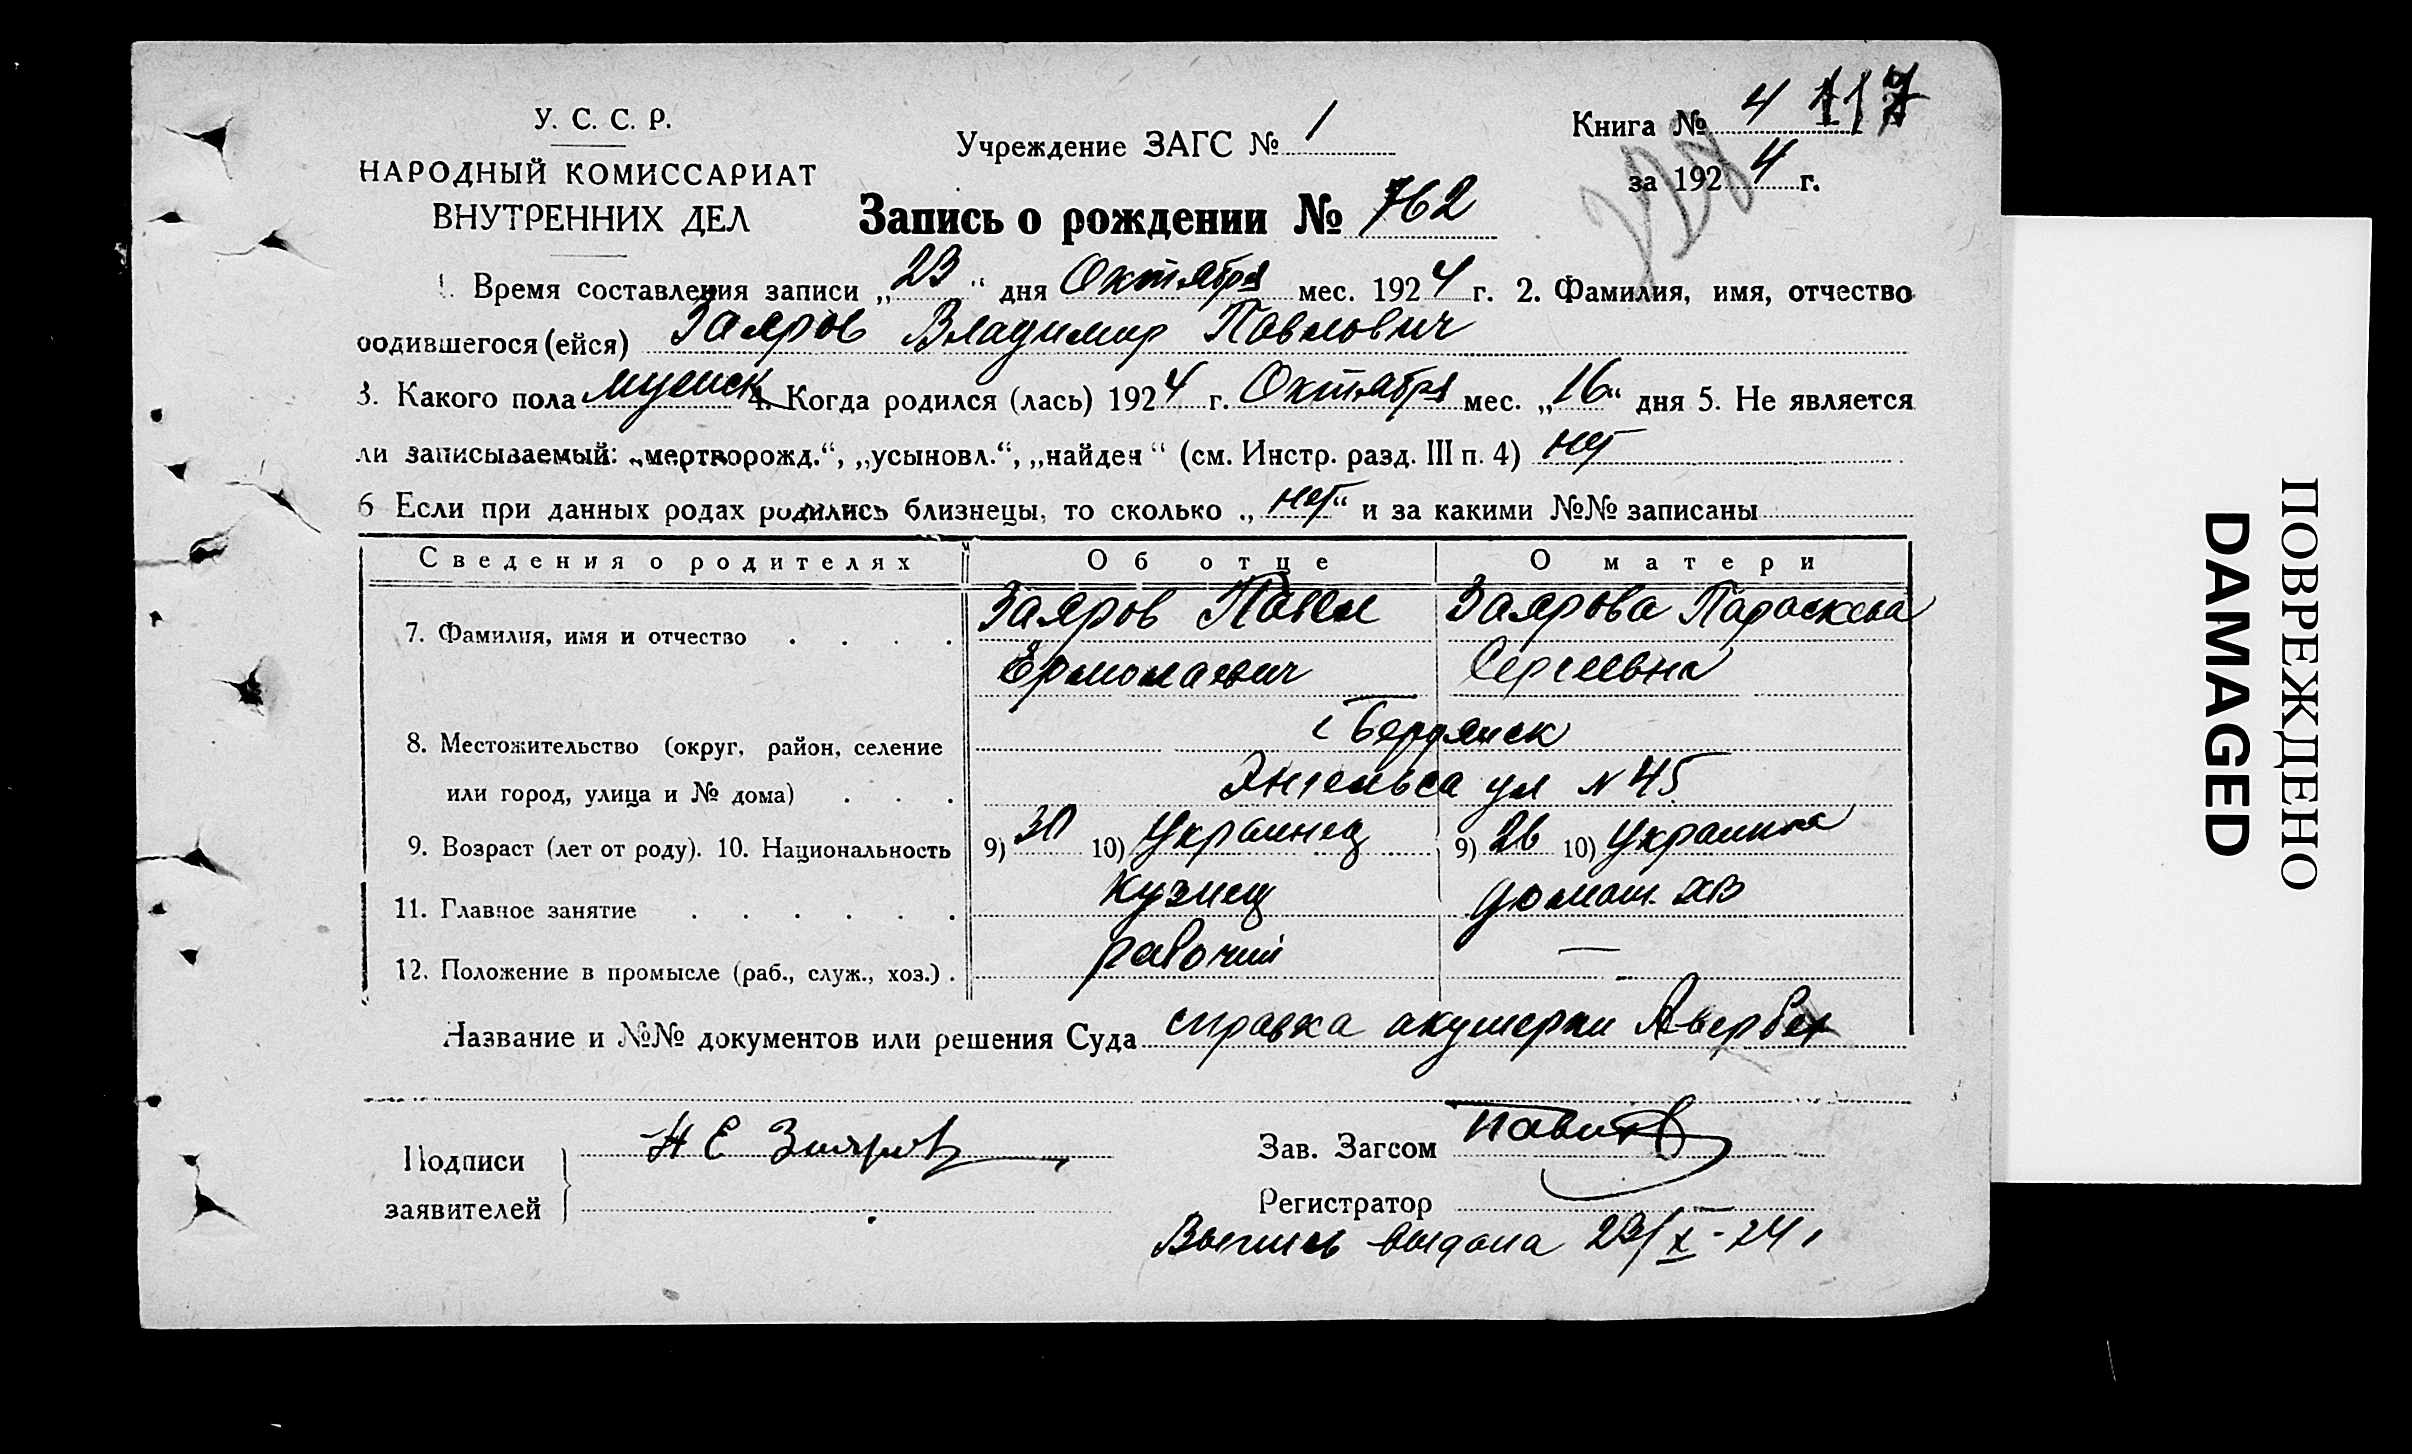 У. С. С. Р.
НАРОДНЫЙ КОМИССАРИАТ
ВНУТРЕННИХ ДЕЛ
Учреждение ЗАГС № 1
Книга № 4 117
за 1924 г.
Запись о рождении № 762
1. Время составления записи „23“ дня Октября мес. 1924 г. 2. Фамилия, имя, отчество
родившегося (ейся) Заяров Владимир Павлович
3. Какого пола мужск 4. Когда родился (лась) 1924 г. Октября мес. „16“ дня 5. Не является
ли записываемый: „мертворожд.“, „усыновл.“, „найден“ (см. Инстр. разд. III п. 4) нет
6 Если при данных родах родились близнецы, то сколько „нет“ и за какими №№ записаны
Сведения о родителях Об отце О матери
7. Фамилия, имя и отчество . . . . Заяров Павел Заярова Параскева
Ермолаевич Сергеевна
8. Местожительство (округ, район, селение г Бердянск
или город, улица и № дома) . . . Энгельса ул N 45
9. Возраст (лет от роду). 10. Национальность 9) 30 10) Украинец 9) 26 10) Украинка
11. Главное занятие . . . . . . кузнец домаш. хоз
12. Положение в промысле (раб., служ., хоз.) . рабочий —
Название и №№ документов или решения Суда справка акушерки Авербах
Подписи
заявителей
Е Заяров
Зав. Загсом
Регистратор
Выпись выдана 23/X-24 г
ПОВРЕЖДЕНО
DAMAGED